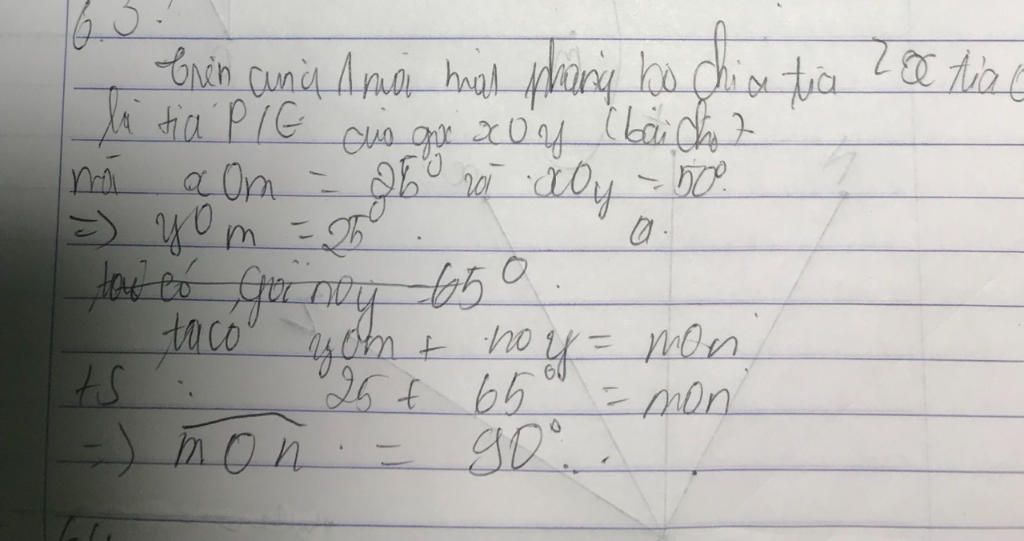 6.3.
trên cùng 1 nửa mặt phẳng bờ chứa tia tia
là tia P/G của góc xOy (bài cho)
mà xOm = 25⁰ và xOy = 50⁰.
=> yOm = 25⁰. a.
ta có góc noy 65⁰.
ta có yOm + noy = mOn
+S : 25 + 65⁰ = mon
=> mOn = 90⁰..